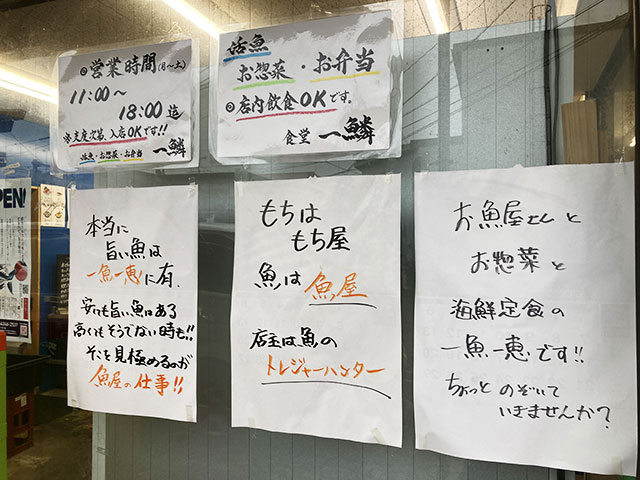 ◎営業時間(月〜土)
11:00〜
18:00迄
※支度次第、入店OKです!!
活魚・お惣菜・お弁当 一鱗
活魚
お惣菜・お弁当
◎店内飲食OKです。
食堂 一鱗
PEN!
本当に
旨い魚は
一魚一恵に有.
安くも旨い魚はある
高くてもそうでない時も!!
そこを見極めるのが
魚屋の仕事!!
もちは
もち屋
魚は魚屋
店主は魚の
トレジャーハンター
お魚屋さんと
お惣菜と
海鮮定食の
一魚一恵です!!
ちょっとのぞいて
いきませんか?